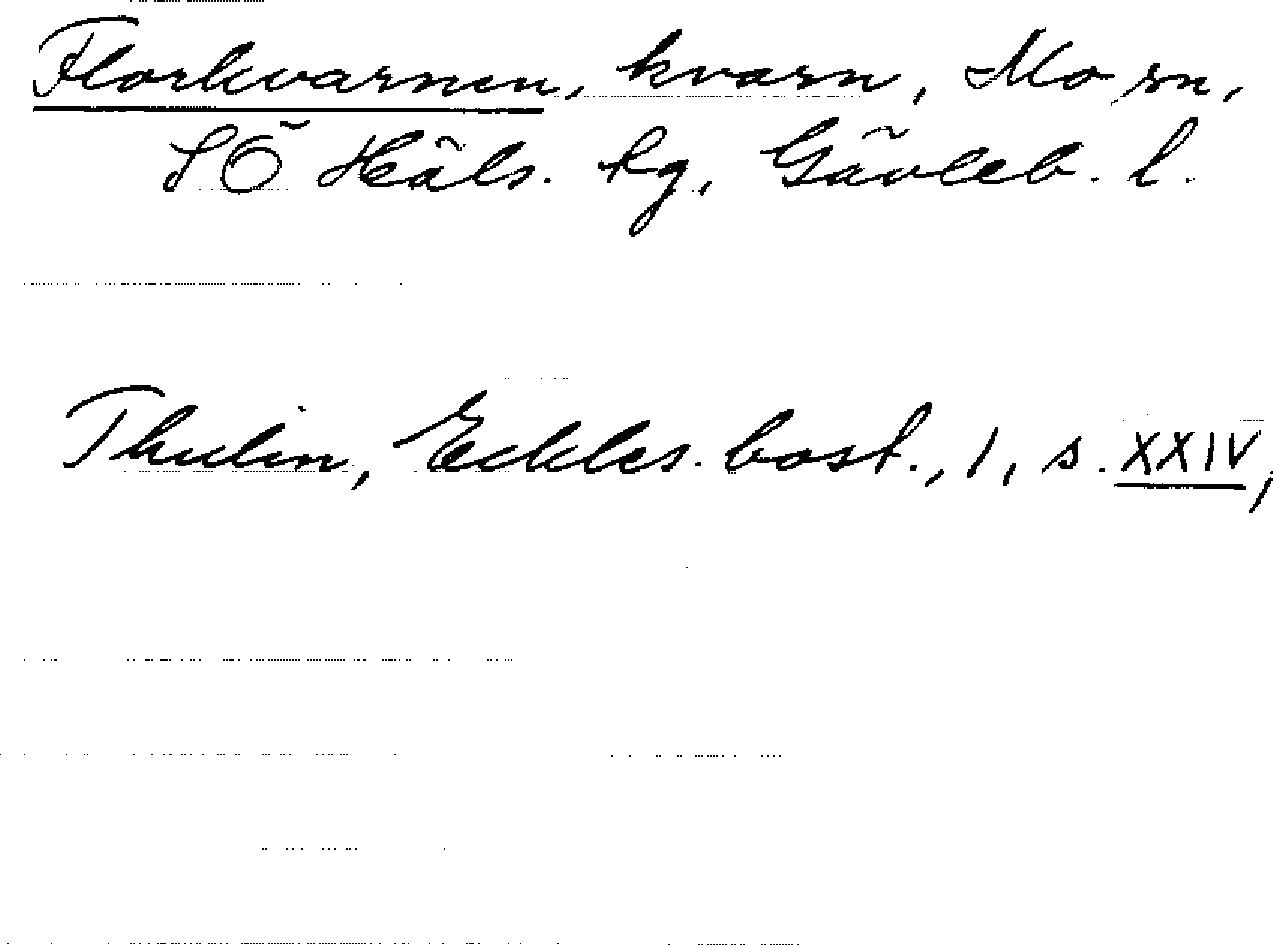 Florkvarnen, kvarn, Mo sn,
SÖ Häls. tg, Gävleb. l.
Thulin, Eckles. bost., 1, s. XXIV,